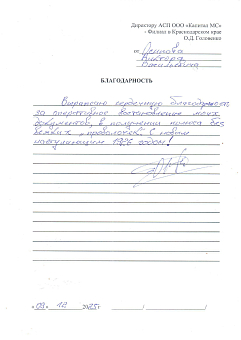 Директору АСП ООО «Капитал МС»
- Филиал в Краснодарском крае
О.Д. Головенко
от
Виктора
Васильевича
БЛАГОДАРНОСТЬ
Выражаю сердечную благодарность
за оперативное восстановление моих
документов, в получении полиса без
всяких „проволочек". С новым
наступающим 1926 годом!
«09» 12 2025г